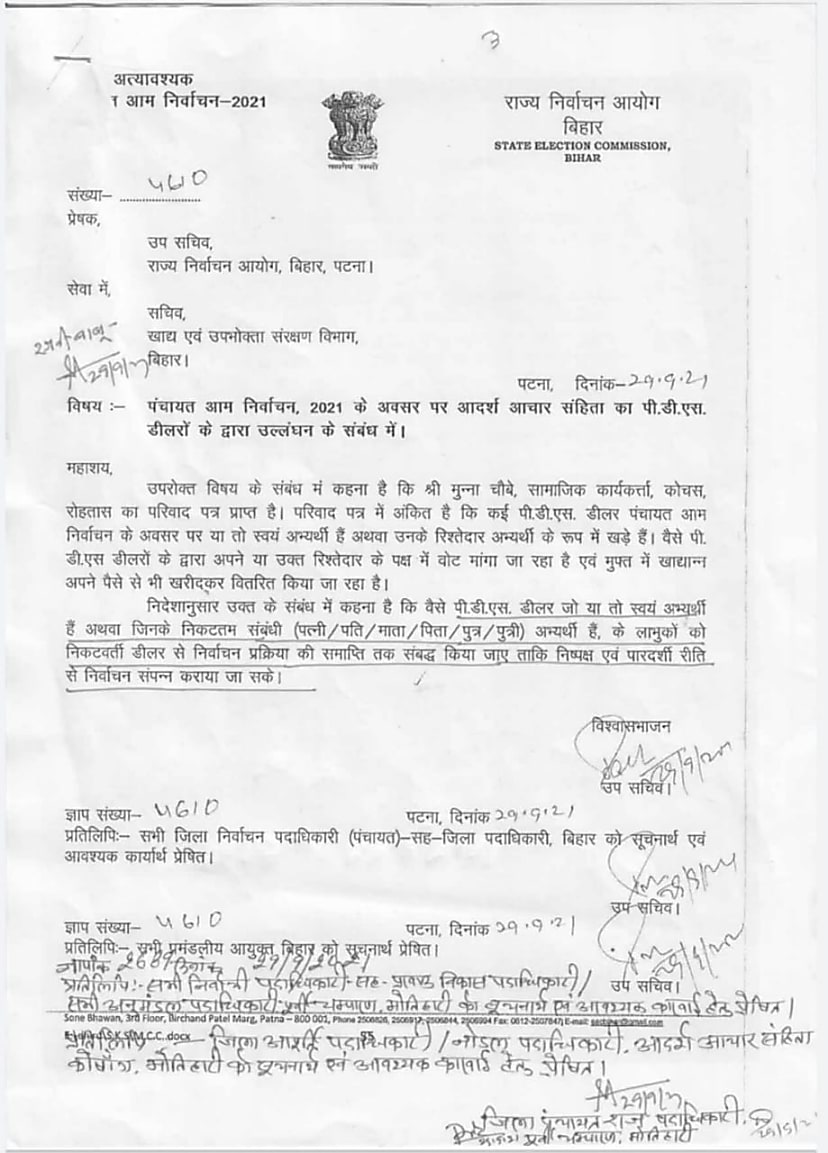 3
अत्यावश्यक
त आम निर्वाचन–2021
राज्य निर्वाचन आयोग
बिहार
STATE ELECTION COMMISSION,
BIHAR
सत्यमेव जयते
संख्या– 4610
प्रेषक,
उप सचिव,
राज्य निर्वाचन आयोग, बिहार, पटना।
सेवा में,
सचिव,
खाद्य एवं उपभोक्ता संरक्षण विभाग,
बिहार।
29/9/21
पटना, दिनांक–29.9.21
विषय :– पंचायत आम निर्वाचन, 2021 के अवसर पर आदर्श आचार संहिता का पी.डी.एस.
डीलरों के द्वारा उल्लंघन के संबंध में।
महाशय,
उपरोक्त विषय के संबंध मं कहना है कि श्री मुन्ना चौबे, सामाजिक कार्यकर्त्ता, कोचस,
रोहतास का परिवाद पत्र प्राप्त है। परिवाद पत्र में अंकित है कि कई पी.डी.एस. डीलर पंचायत आम
निर्वाचन के अवसर पर या तो स्वयं अभ्यर्थी हैं अथवा उनके रिश्तेदार अभ्यर्थी के रूप में खड़े हैं। वैसे पी.
डी.एस डीलरों के द्वारा अपने या उक्त रिश्तेदार के पक्ष में वोट मांगा जा रहा है एवं मुफ्त में खाद्यान्न
अपने पैसे से भी खरीदकर वितरित किया जा रहा है।
निदेशानुसार उक्त के संबंध में कहना है कि वैसे पी.डी.एस. डीलर जो या तो स्वयं अभ्यर्थी
हैं अथवा जिनके निकटतम संबंधी (पत्नी/पति/माता/पिता/पुत्र/पुत्री) अभ्यर्थी हैं, के लाभुकों को
निकटवर्ती डीलर से निर्वाचन प्रक्रिया की समाप्ति तक संबद्ध किया जाए ताकि निष्पक्ष एवं पारदर्शी रीति
से निर्वाचन संपन्न कराया जा सके।
विश्वासभाजन
उप सचिव।
ज्ञाप संख्या– 4610 पटना, दिनांक 29.9.21
प्रतिलिपिः– सभी जिला निर्वाचन पदाधिकारी (पंचायत)–सह–जिला पदाधिकारी, बिहार को सूचनार्थ एवं
आवश्यक कार्यार्थ प्रेषित।
उप सचिव।
ज्ञाप संख्या– 4610 पटना, दिनांक 29.9.21
प्रतिलिपिः– सभी प्रमंडलीय आयुक्त बिहार को सूचनार्थ प्रेषित।
उप सचिव।
ज्ञापांक दिनांक 29/9/2021
प्रतिलिपि:- सभी निर्वाची पदाधिकारी-सह-प्रखण्ड विकास पदाधिकारी/
सभी अनुमंडल पदाधिकारी पूर्वी चम्पारण, मोतिहारी को सूचनार्थ एवं आवश्यक कार्रवाई हेतु प्रेषित।
Sone Bhawan, 3rd Floor, Birchand Patel Marg, Patna – 800 001, Phone 2506826, 2506917, 2506844, 2506994 Fax: 0612-2507847, E-mail:
प्रतिलिपि – जिला आपूर्ति पदाधिकारी / नोडल पदाधिकारी, आदर्श आचार संहिता
कोषांग, मोतिहारी को सूचनार्थ एवं आवश्यक कार्रवाई हेतु प्रेषित।
29/9/21
जिला पंचायत राज पदाधिकारी,
पूर्वी चम्पारण, मोतिहारी